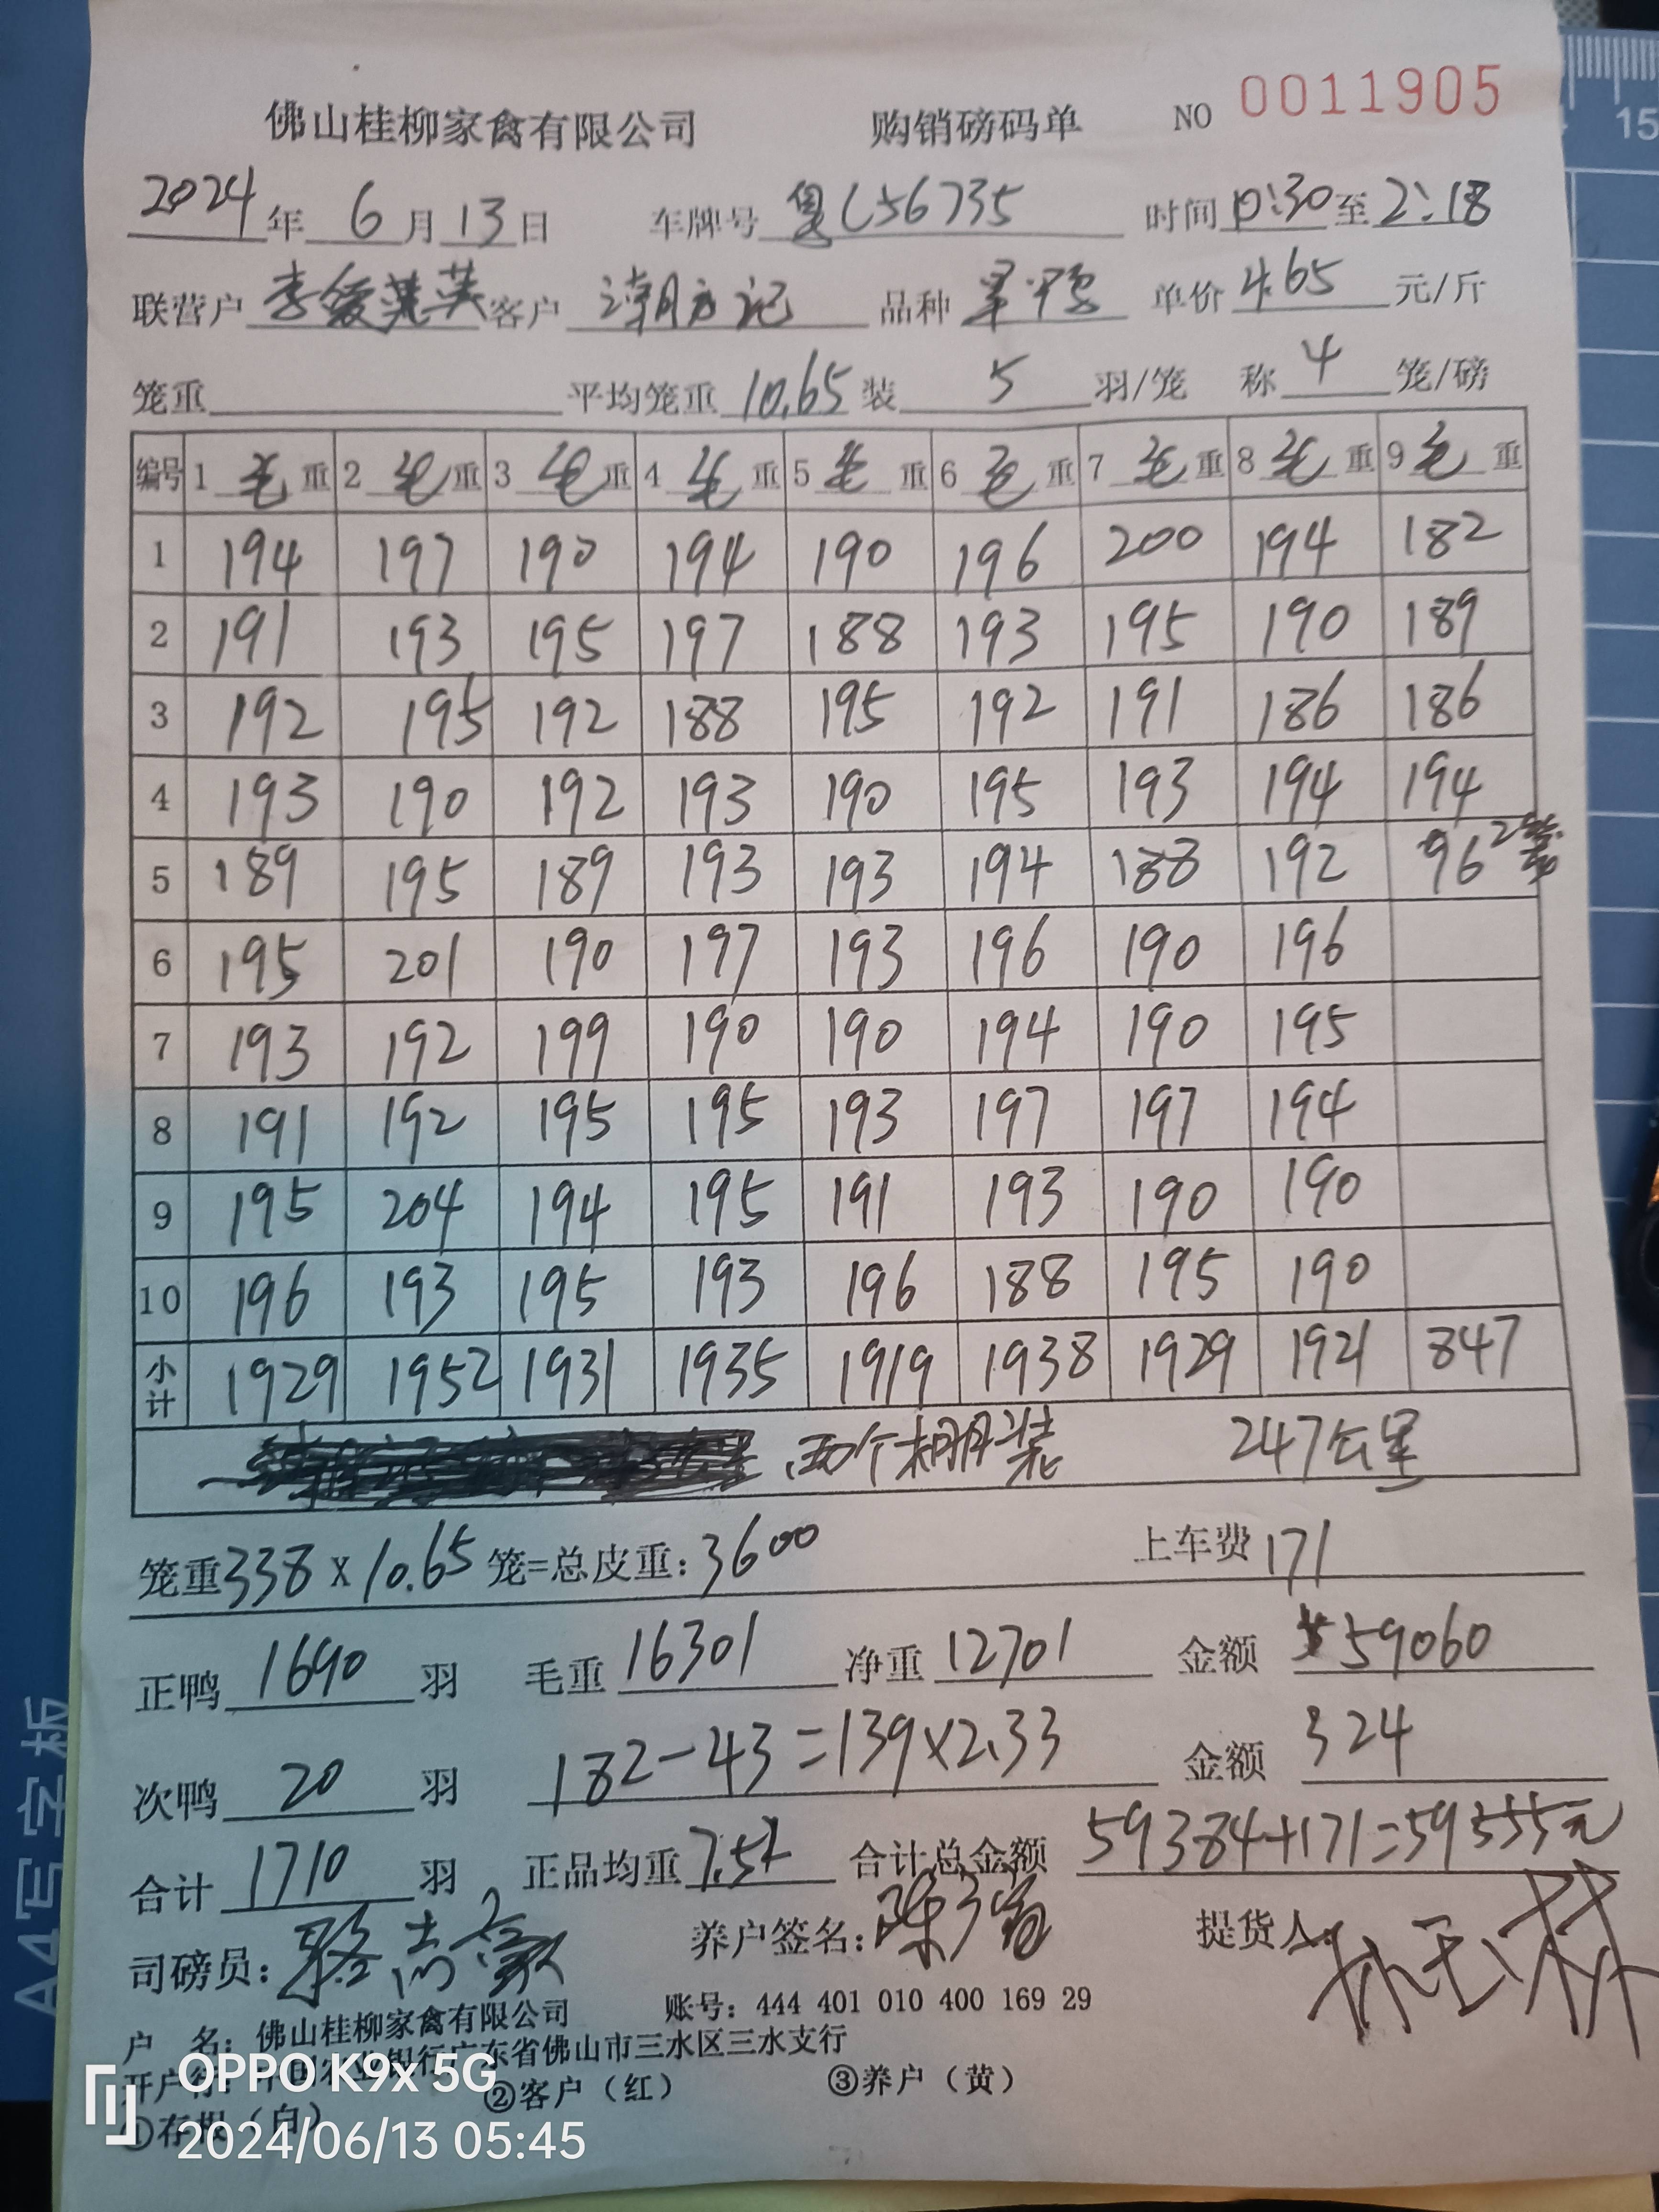 佛山桂柳家禽有限公司 购销磅码单 NO 0011905
2024年6月13日 车牌号粤C56735 时间0:30至2:18
联营户 客户 潮方记 品种 单价4.65元/斤
笼重 平均笼重10.65装5羽/笼 称4笼/磅
编号 1毛重 2毛重 3毛重 4毛重 5毛重 6毛重 7毛重 8毛重 9毛重
1 194 197 190 194 190 196 200 194 182
2 191 193 195 197 188 193 195 190 189
3 192 195 192 188 195 192 191 186 186
4 193 190 192 193 190 195 193 194 194
5 189 195 189 193 193 194 188 192 96 2笼
6 195 201 190 197 193 196 190 196
7 193 192 199 190 190 194 190 195
8 191 192 195 195 193 197 197 194
9 195 204 194 195 191 193 190 190
10 196 193 195 193 196 188 195 190
小计 1929 1952 1931 1935 1919 1938 1929 1921 847
两个棚装 247公里
笼重338×10.65笼=总皮重:3600 上车费171
正鸭1690羽 毛重16301 净重12701 金额59060
次鸭20羽 182-43=139×2.33 金额324
合计1710羽 正品均重7.5斤 合计总金额59384+171=59555元
司磅员:骆志豪 养户签名: 提货人:
户 名:佛山桂柳家禽有限公司 账号:444 401 010 400 169 29
开户行:中国农业银行广东省佛山市三水区三水支行
①存根(白) ②客户(红) ③养户(黄)
OPPO K9x 5G
2024/06/13 05:45
A4写字板
15